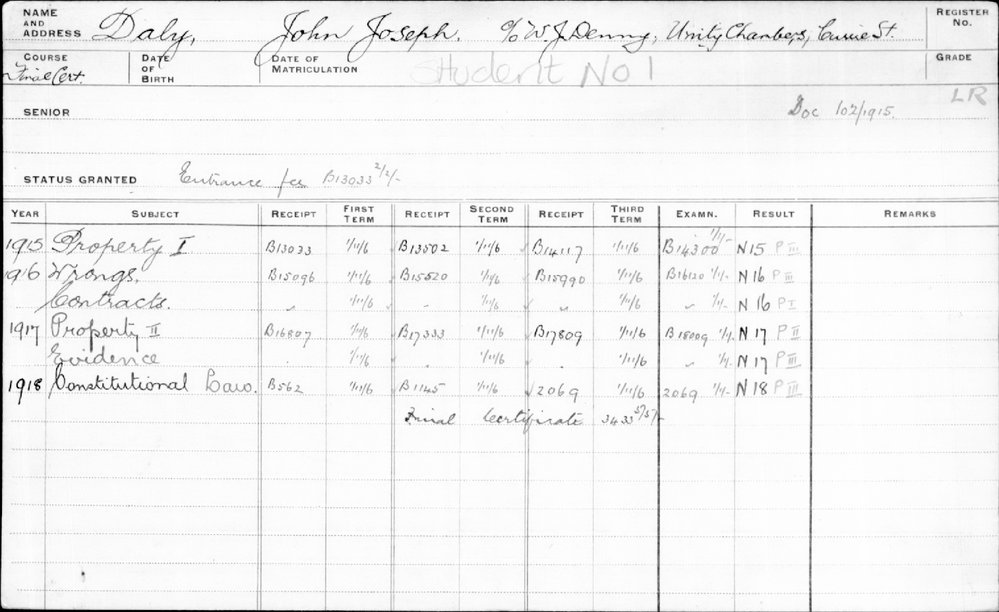 NAME AND ADDRESS Daly, John Joseph. c/o W. J. Denny, Unity Chambers, Currie St. REGISTER No.
COURSE Final Cert. DATE OF BIRTH DATE OF MATRICULATION Student No 1 GRADE
LR
SENIOR Doc 102/1915.
STATUS GRANTED Entrance fee B13033 2/2/-
YEAR SUBJECT RECEIPT FIRST TERM RECEIPT SECOND TERM RECEIPT THIRD TERM EXAMN. RESULT REMARKS
1915 Property I B13033 1/11/6 B13502 1/11/6 B14117 1/11/6 B14300 1/1/- N15 P III
1916 Wrongs. B15096 1/11/6 B15520 1/11/6 B15990 1/11/6 B16120 1/1/- N16 P III
Contracts. " 1/11/6 " 1/11/6 " 1/11/6 " 1/1/- N16 P I
1917 Property II B16807 1/11/6 B17333 1/11/6 B17809 1/11/6 B18009 1/1/- N17 P II
Evidence " 1/11/6 " 1/11/6 " 1/11/6 " 1/1/- N17 P III
1918 Constitutional Law. B562 1/11/6 B1145 1/11/6 2069 1/11/6 2069 1/1/- N18 P III
Final Certificate 3433 5/5/-